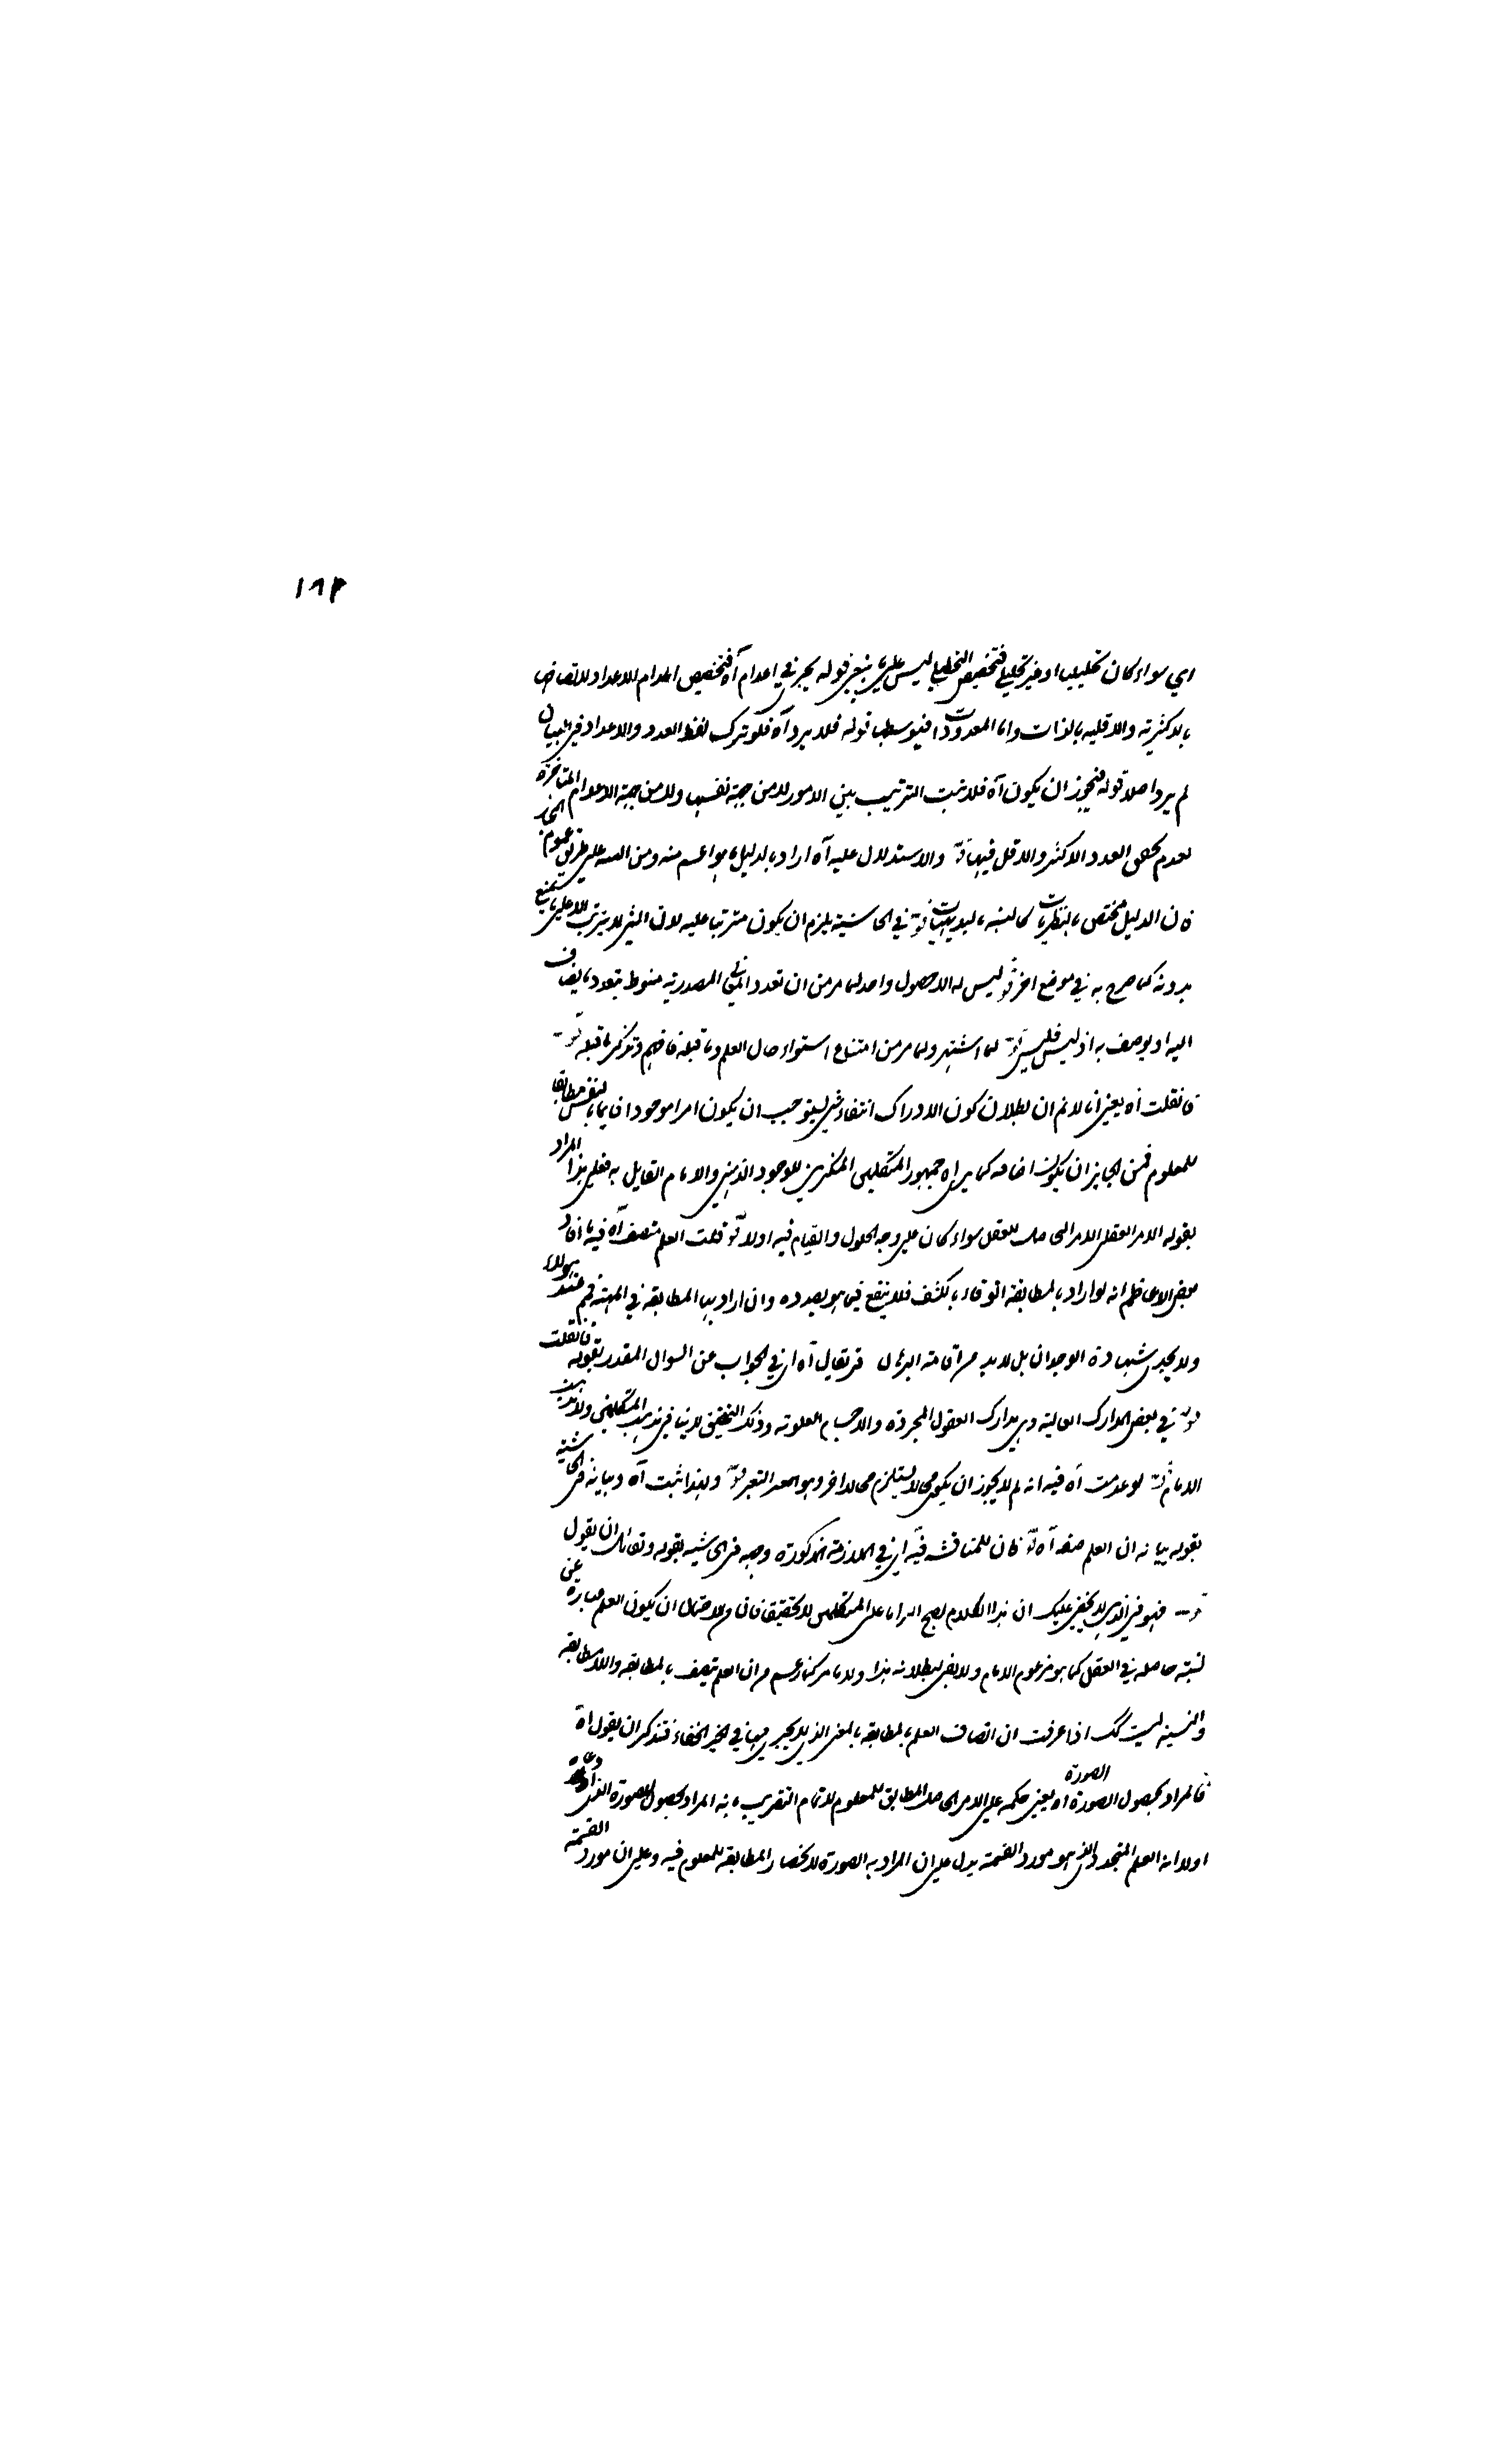 ١٨٣
اي سواء كان تحليليا او غير تحليلي فتخصيص التحليلي ليس على ما ينبغي قوله يجري في اعدام آه فتخصيص اعدام الاعداد للاتصاف
بالاكثرية والاقلية بالذات واما المعدودات فبتوسطها قوله فلا يرد آه فلو ترك لفظ العدد والاعداد في البيان
لم يرد اصلا قوله فيجوز ان يكون آه فلا يثبت الترتيب بين الامور لا من جهة نفسها ولا من جهة الاعدام المتأخرة
لعدم تحقق العدد الاكثر والاقل فيها قوله والاستدلال عليه آه اراد بالدليل ما هو اعم منه ومن على طريق عموم المجاز
فان الدليل مختص بالنظريات كالبديهيات قوله في الحاشية يلزم ان يكون مترتبا عليه لان الشئ لا يترتب الا على ما يمتنع
بدونه كما صرح به في موضع اخر قوله ليس له الا حصول واحد لما مر من ان تعدد المعاني المصدرية منوط بتعدد ما يضاف
اليه او يوصف به اذ ليس فليس قوله لما اشتهر ولما مر من امتناع استواء حال العلم وما قبله فافهم وتذكر ما قبله قوله
فان قلت آه يعني انا لا نم ان بطلان كون الادراك انتفاء شئ يستوجب ان يكون امرا موجودا قائما بالنفس مطابقا
للمعلوم فمن الجائز ان يكون اضافة كما يراه جمهور المتكلمين المنكرين للوجود الذهني والامام القايل به فعلى هذا المراد
بقوله الامر العقلي الامر الحاصل للعقل سواء كان على وجه الحلول والقيام فيه اولا قوله قلت العلم متصف آه فيه ما افاد
بعض الاعاظم انه لو اراد بالمطابقة بالكشف فلا ينفع فيما هو بصدده وان اراد بها المطابقة في المهية فهم عند هؤلاء
ولا يجدي شهادة الوجدان بل لا بد من اقامة البرهان قوله يقال آه اي في الجواب عن السوال المقدر بقوله فان قلت
قوله في بعض المدارك العالية وهي مدارك العقول المجردة والاجسام العلوية وذلك التحقيق لا ينافي مذهب المتكلمين ولا مذهب
الامام قوله لو عدمت آه فيه انه لم لا يجوز ان يكون محالا يستلزم محالا اخر وهو قوله ولهذا اثبت آه وبيانه في الحاشية
بقوله بيانه ان العلم صفة آه قوله فان للمناقشة فيه اي في الملازمة المذكورة وجه في الحاشية بقوله ولقائل ان يقول
قوله فهو في الذي لا يخفى عليك ان هذا الكلام يصح الزاما على المتكلمين لا تحقيقا لاحتمال ان يكون العلم عبارة عن
نسبة حاصلة في العقل كما هو مزعوم الامام ولا يفي ببطلانه هذا ولا ما من ان العلم يتصف بالمطابقة واللامطابقة
والنسبة ليست كك اذا عرفت ان اتصاف العلم بالمطابقة بالمعنى الذي لا يجري فيها في الخفاء فتذكر ان يقول آه
فالمراد بحصول الصورة الصورة آه يعني حكمه على الامر الحاصل المطابق للمعلوم لاتمام التقريب بانه المراد بحصول الصورة
اولا ان العلم المتجدد الذي هو مورد القسمة يدل على ان المراد به الصورة لانحصار المطابقة للمعلوم فيه وعلى ان مورد القسمة